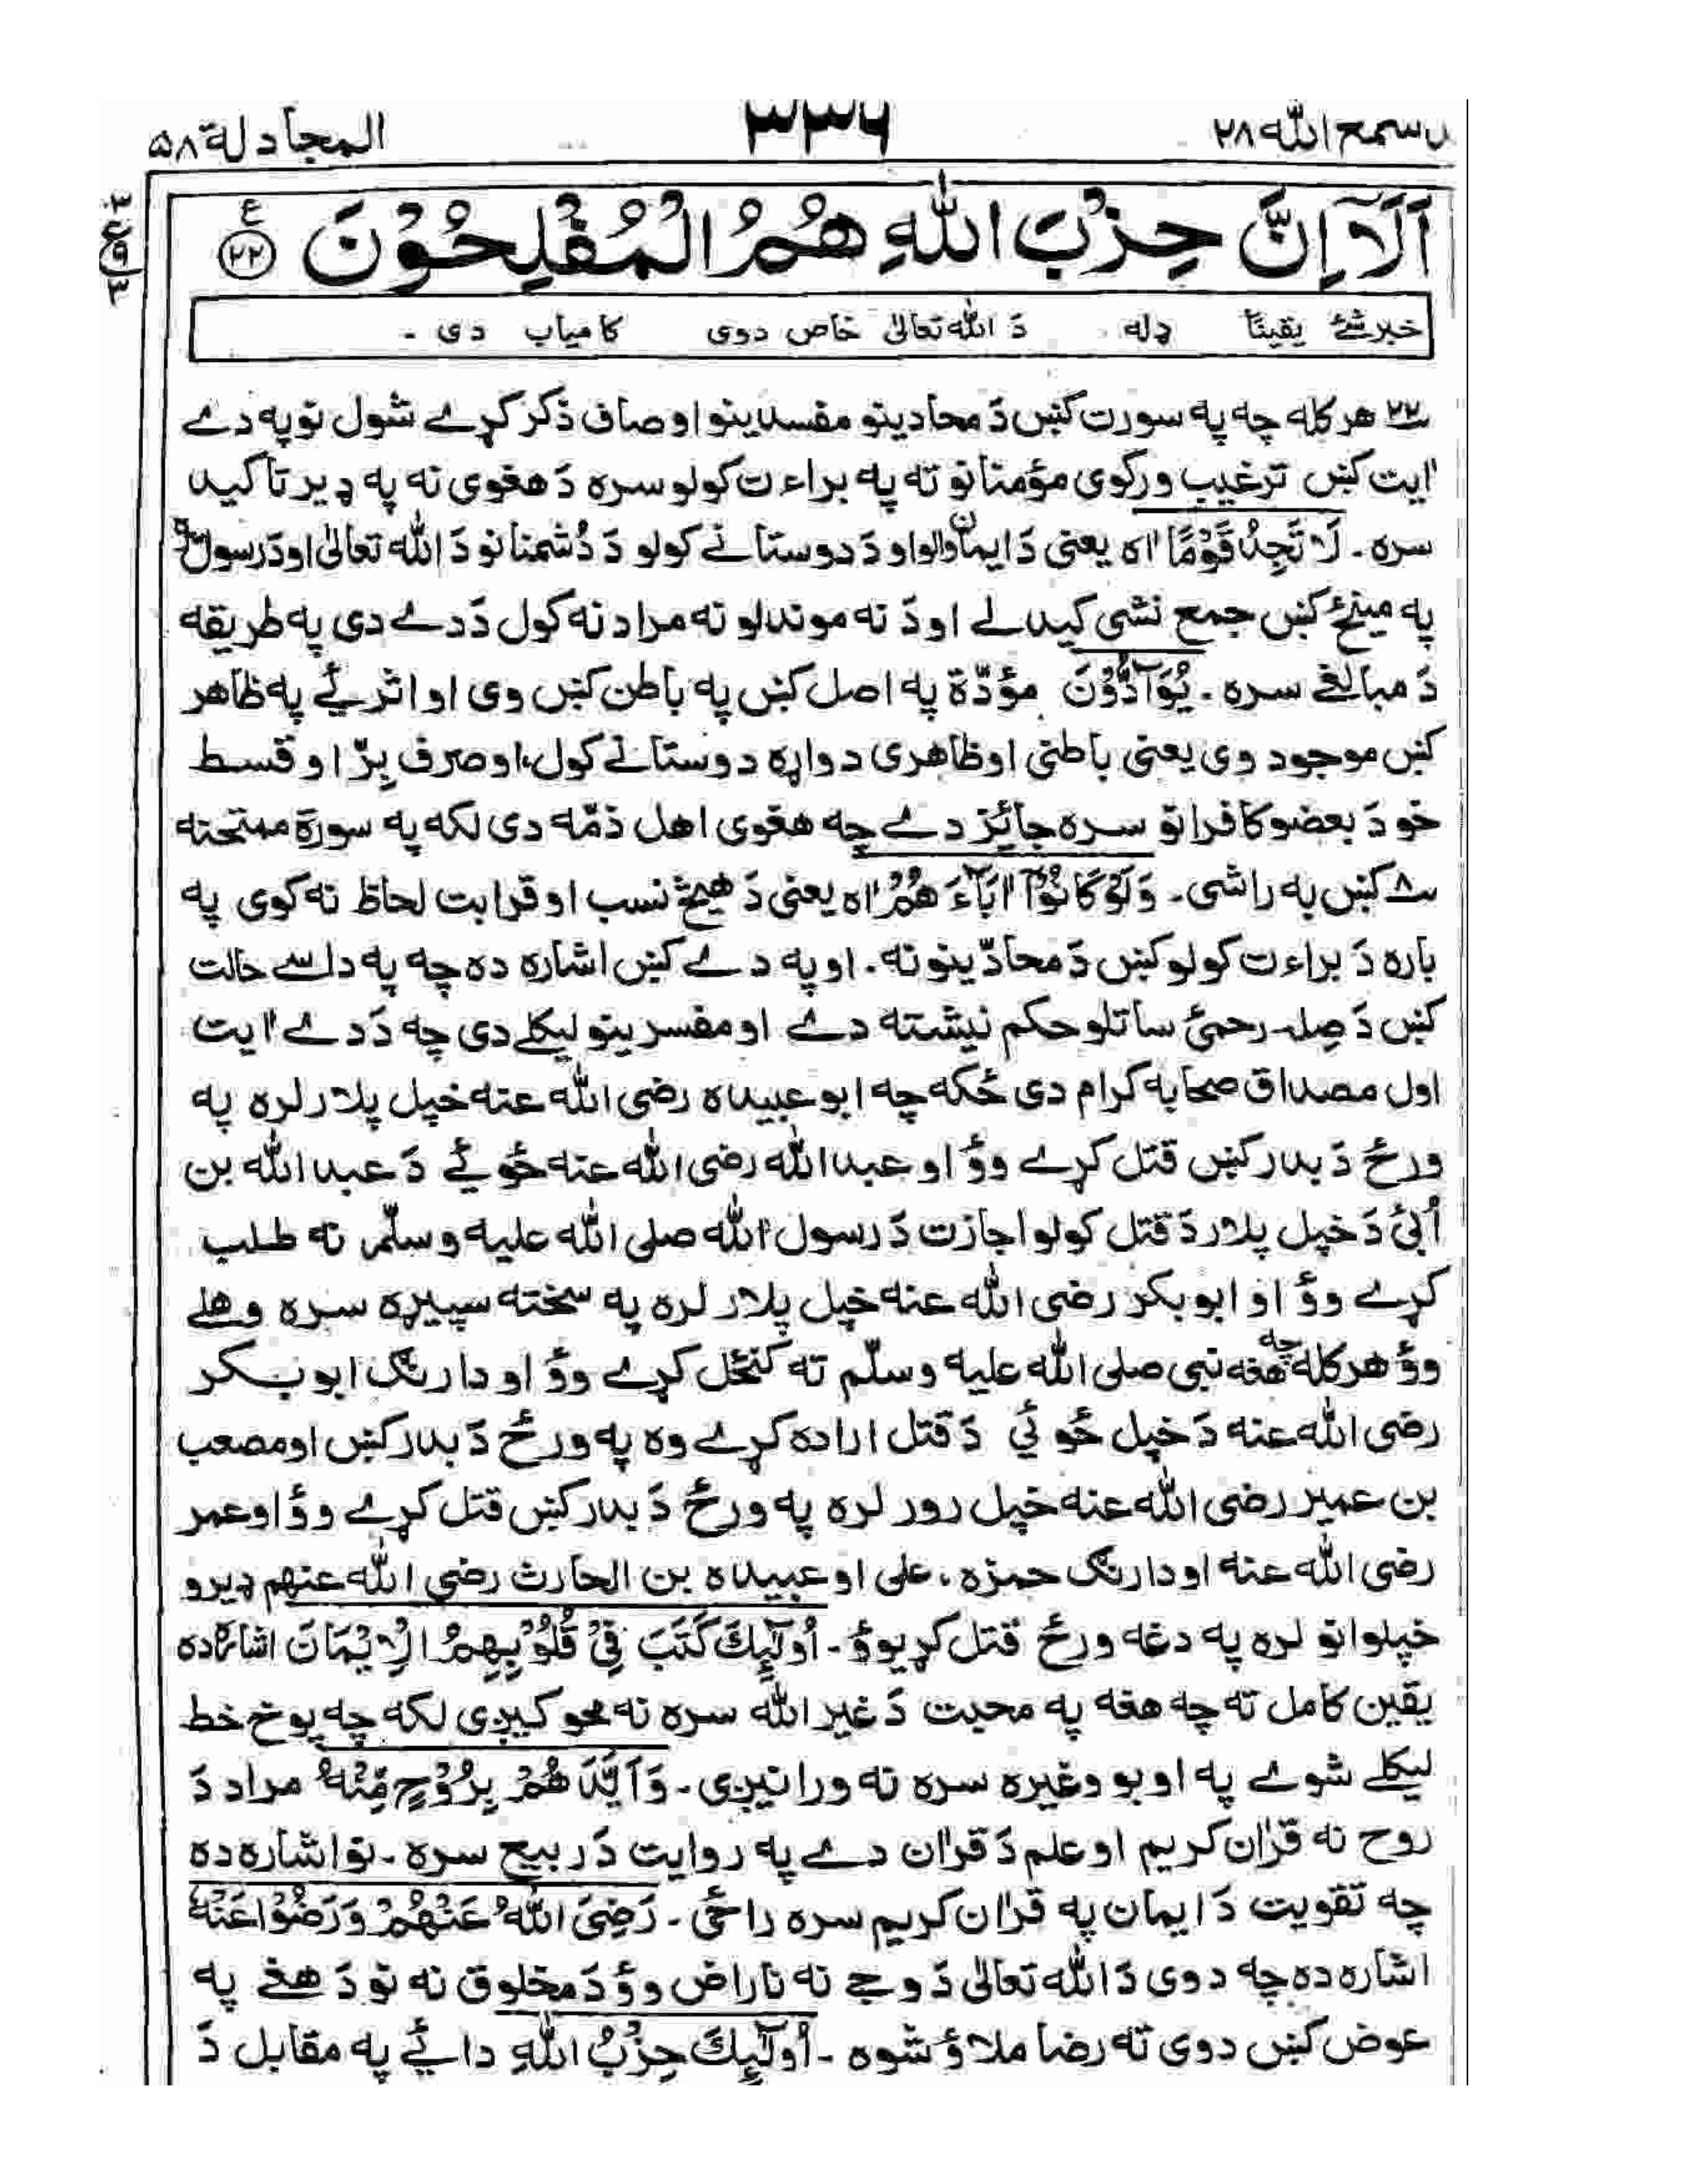 قد سمع الله ۲۸
۳۳۶
المجادلة ۵۸
اَلَآ اِنَّ حِزْبَ اللّٰهِ هُمُ الْمُفْلِحُوْنَ ۲۲ ع
۳ ع ۹ ۳
خبر شئ يقيناً ډله دَ الله تعالىٰ خاص دوى کامياب دى -
۲۲ هر کله چه په سورت کښ دَ محادينو مفسدينو اوصاف ذکر کړے شول نو په دے
اٰيت کښ ترغيب ورکوى مؤمنانو ته په براءت کولو سره دَ هغوى نه په ډير تاکيد
سره ـ لَا تَجِدُ قَوْمًا اٰه يعنى دَ ايمان والو او دَ دوستانے کولو دَ دُشمنانو دَ الله تعالىٰ او دَ رسول ته
په مينځ کښ جمع نشى کيدلے او دَ نه موندلو نه مراد نه کول دَ دے دى په طريقه
دَ مبالغے سره ـ يُوَآدُّوْنَ مؤدّة په اصل کښ په باطن کښ وى او اثر يے په ظاهر
کښ موجود وى يعنى باطنى او ظاهرى دواړه دوستانے کول، او صرف بِرّ او قسط
خو دَ بعضو کافرانو سره جائز دے چه هغوى اهل ذمّه دى لکه په سورة ممتحنه
۸ کښ به راشى ـ وَلَوْ كَانُوْٓا اٰبَآءَ هُمْ اٰه يعنى دَ هيڅ نسب او قرابت لحاظ نه کوى په
باره دَ براءت کولو کښ دَ محادّينو نه ـ او په دے کښ اشاره ده چه په داسے حالت
کښ دَ صِله رحمئ ساتلو حکم نيشته دے او مفسرينو ليکلے دى چه دَ دے اٰيت
اول مصداق صحابه کرام دى ځکه چه ابو عبيده رضى الله عنه خپل پلار لره په
ورځ دَ بدر کښ قتل کړے وؤ او عبد الله رضى الله عنه ځوئے دَ عبد الله بن
اُبئ دَ خپل پلار دَ قتل کولو اجازت دَ رسول الله صلى الله عليه وسلّم نه طلب
کړے وؤ او ابوبکر رضى الله عنه خپل پلار لره په سخته سپيړه سره وهلے
وؤ هر کله چه هغه نبى صلى الله عليه وسلّم ته کنځل کړے وؤ او دارنګ ابوبکر
رضى الله عنه دَ خپل ځوئي دَ قتل اراده کړے وه په ورځ دَ بدر کښ او مصعب
بن عمير رضى الله عنه خپل رور لره په ورځ دَ بدر کښ قتل کړے وؤ او عمر
رضى الله عنه او دارنګ حمزه ، على او عبيده بن الحارث رضى الله عنهم ډيرو
خپلوانو لره په دغه ورځ قتل کړيوؤ ـ اُولٰٓئِكَ كَتَبَ فِيْ قُلُوْبِهِمُ الْاِيْمَانَ اشاره ده
يقين کامل ته چه هغه په محبت دَ غير الله سره نه محو کيږى لکه چه پوخ خط
ليکلے شوے په اوبو وغيره سره نه ورانيږى ـ وَاَيَّدَ هُمْ بِرُوْحٍ مِّنْهُ مراد دَ
روح نه قراٰن کريم او علم دَ قراٰن دے په روايت دَ ربيع سره ـ نو اشاره ده
چه تقويت دَ ايمان په قراٰن کريم سره راځى ـ رَضِيَ اللّٰهُ عَنْهُمْ وَرَضُوْا عَنْهُ
اشاره ده چه دوى دَ الله تعالىٰ دَ وجے نه ناراض وؤ دَ مخلوق نه نو دَ هغے په
عوض کښ دوى ته رضا ملاؤ شوه ـ اُولٰٓئِكَ حِزْبُ اللّٰهِ دائے په مقابل دَ